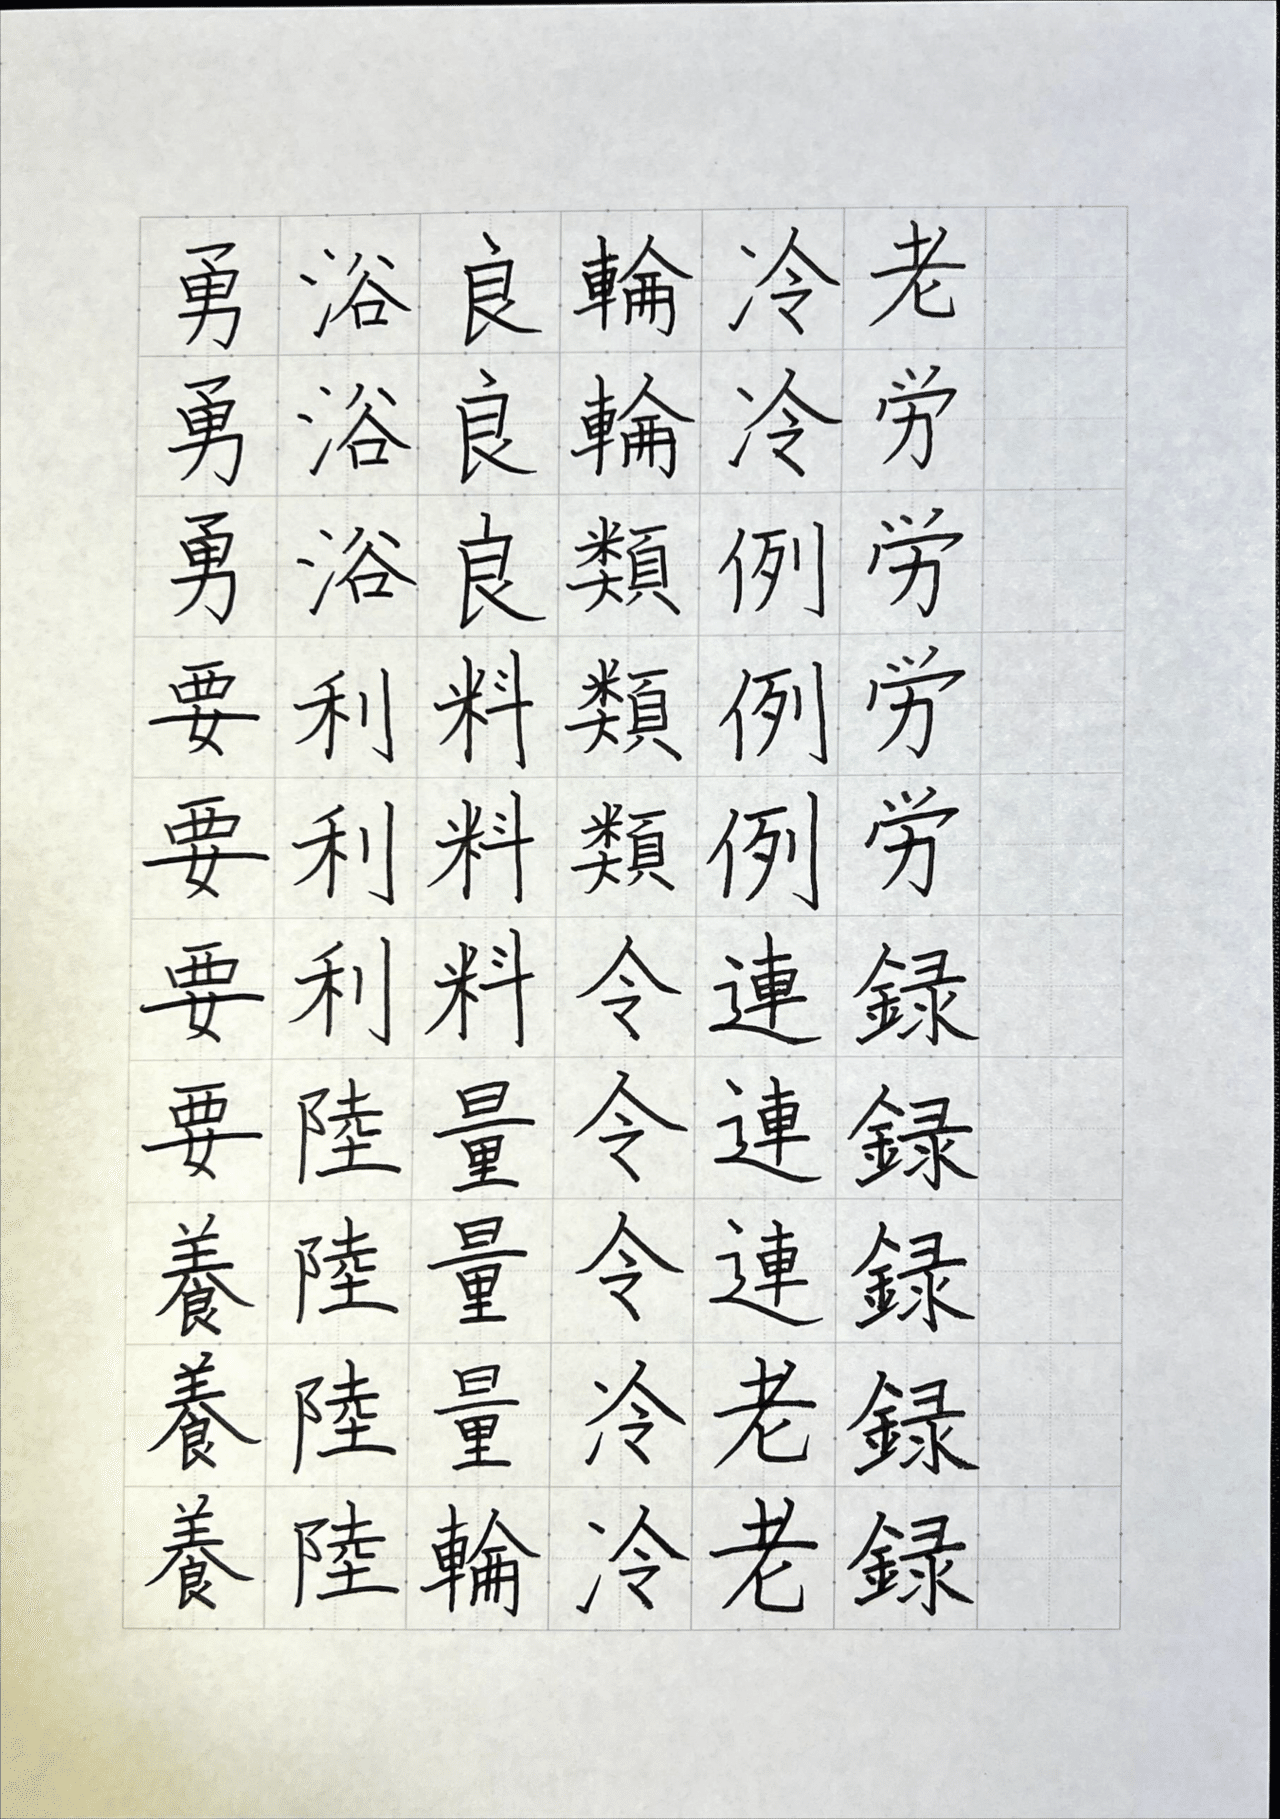 勇勇勇要要要要養養養
浴浴浴利利利陸陸陸陸
良良良料料料量量量輪
輪輪類類類令令令冷冷
冷冷例例例連連連老老
老労労労労録録録録録